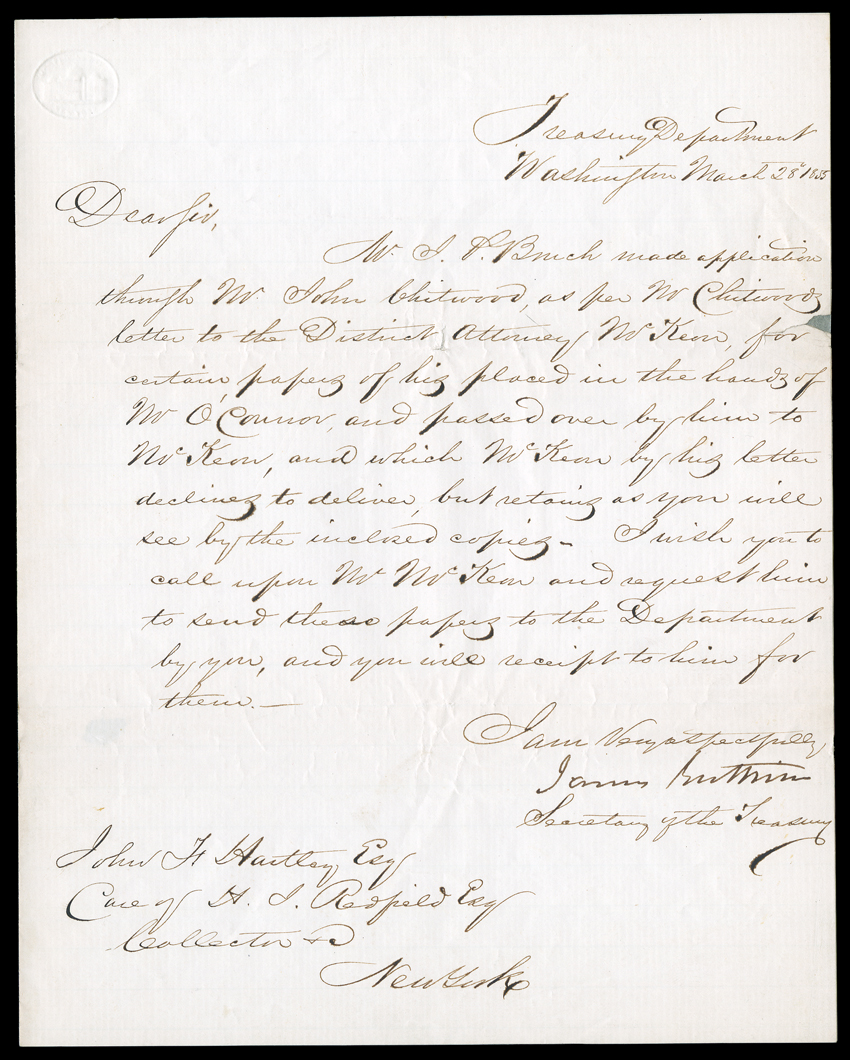 Treasury Department
Washington March 28" 1855
Dear Sir,
Mr. I. P. Bruch made application
through Mr. John Chitwood, as per Mr Chitwoods
letter to the District Attorney McKeon, for
certain, papers of his placed in the hands of
Mr O'Connor, and passed over by him to
McKeon, and which McKeon by his letter
declines to deliver, but retains as you will
see by the inclosed copies - I wish you to
call upon Mr McKeon and request him
to send these papers to the Department
by you, and you will receipt to him for
them. —
I am Very respectfully,
James Guthrie
Secretary of the Treasury
John F Hartley Esq
Care of H. J. Redfield Esq
Collector &c
New York